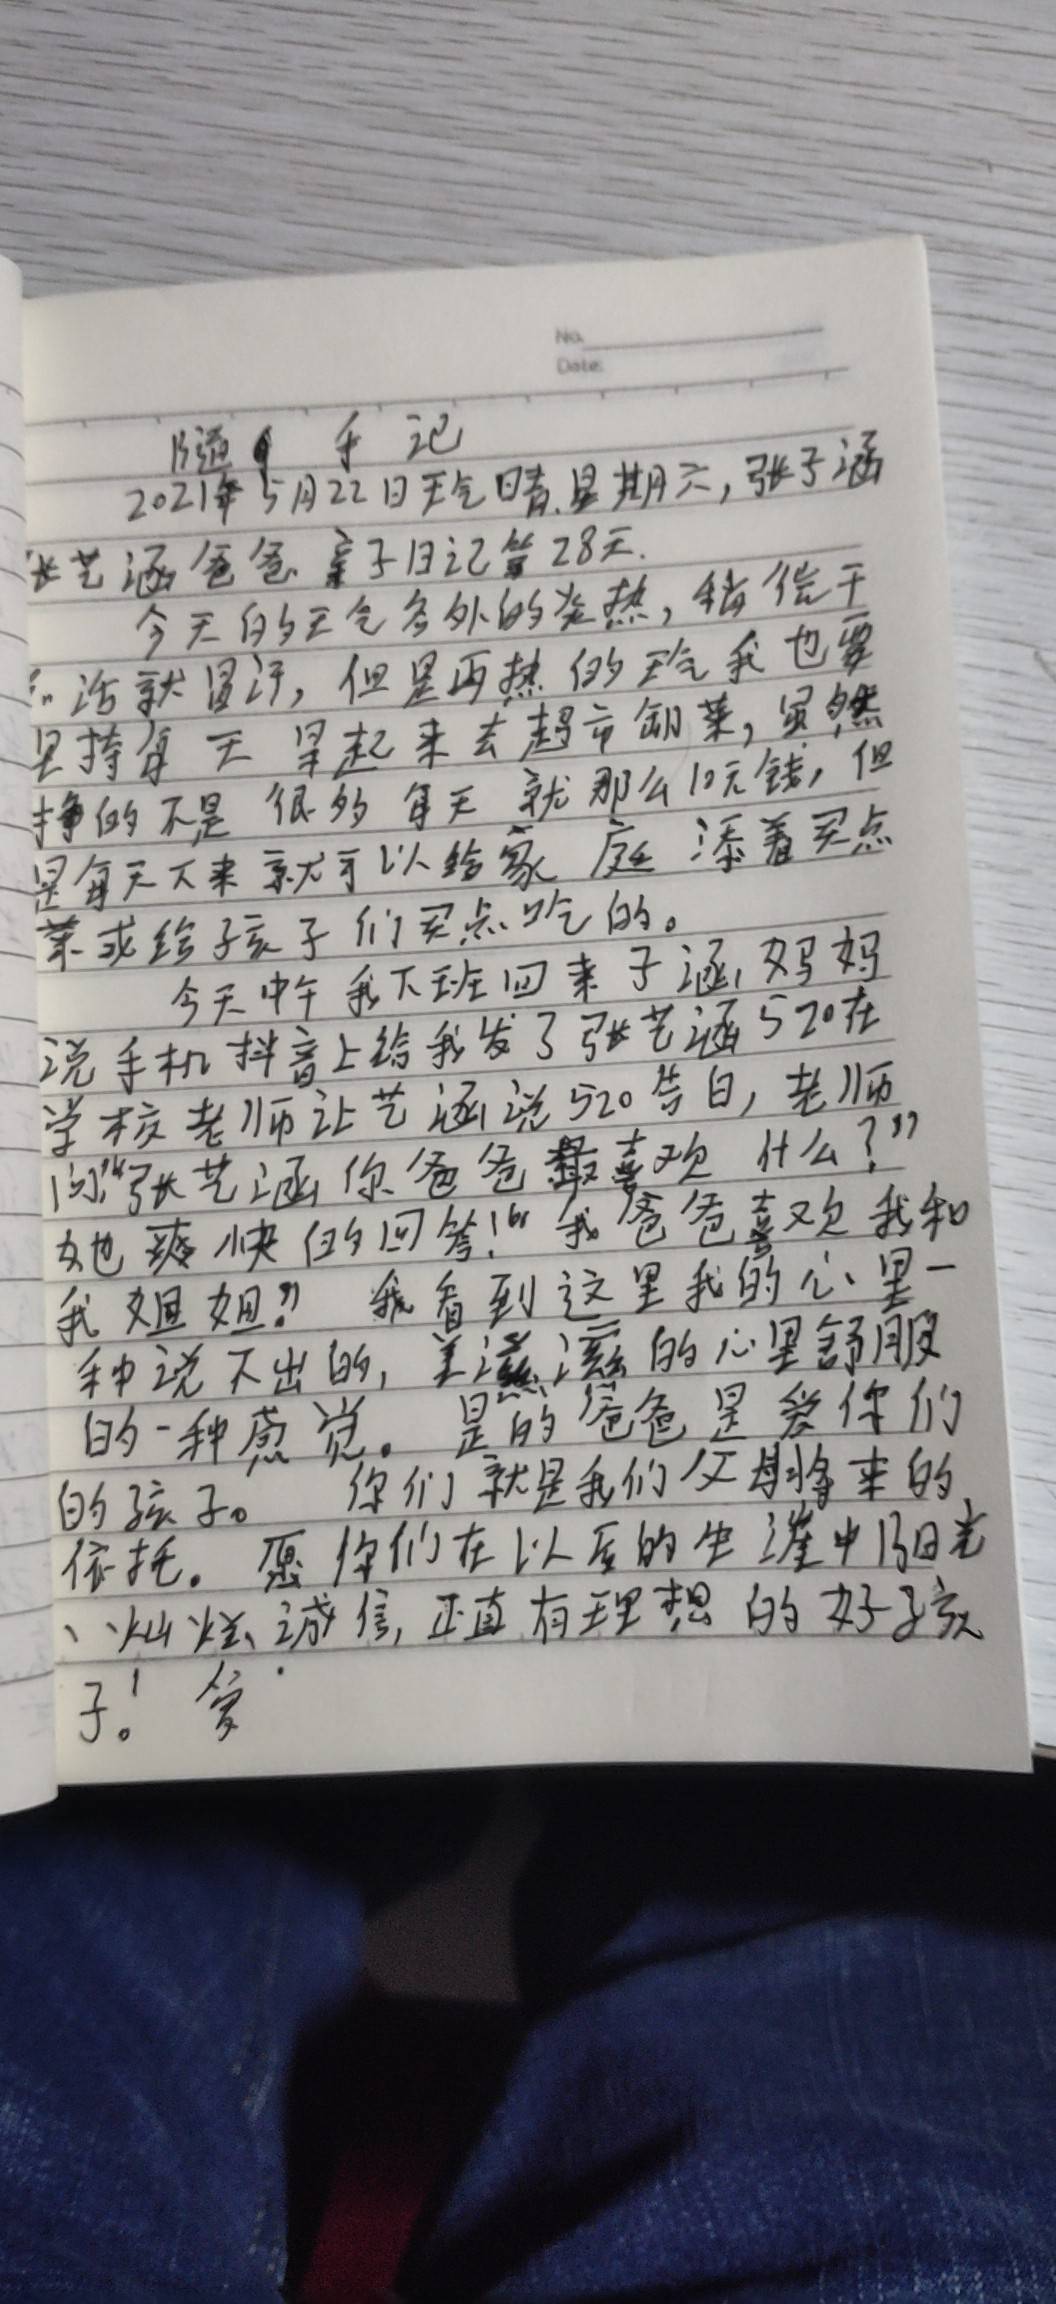 No.
Date:
随手记
2021年5月22日天气晴.星期六,张子涵
张艺涵爸爸亲子日记第28天.
今天的天气多外的炎热,稍偿干
活就冒汗,但是再热的天气我也要
坚持每天早起来去超市卸菜,虽然
挣的不是很多每天就那么10元钱,但
是每天下来就可以给家庭添着买点
菜或给孩子们买点吃的。
今天中午我下班回来子涵妈妈
说手机抖音上给我发了张艺涵520在
学校老师让艺涵说520告白,老师
问“张艺涵你爸爸最喜欢什么?”
她爽快的回答!“我爸爸喜欢我和
我姐姐.”我看到这里我的心里一
种说不出的,美滋滋的心里舒服
的一种感觉。是的爸爸是爱你们
的孩子。你们就是我们父母将来的
依托。愿你们在以后的生涯中阳光
、灿烂、诚信,正直有理想的好孩
子!。